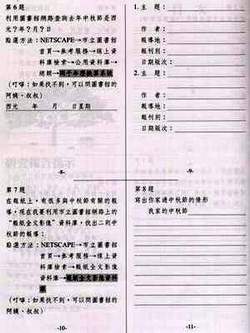 第6題
利用圖書館網路查詢去年中秋節是西
元?年?月?日
點選方法：NETSCAPE→市立圖書館
首頁→參考服務→線上資
料庫檢索→公用資料庫→
(叮嚀：如果找不到，可以問圖書館的
阿姨、叔叔)
西元 年 月 日星期
-8-
1.主 題：
作 者：
報導地：
報刊別：
日期版次：
2.主 題：
作 者：
報導地：
報刊別：
日期版次：
-9-
第7題
在報紙上，有很多與中秋節有關的報
導，現在我要利用市立圖書館網路上的
"報紙全文影像"資料庫，找出二則中
秋節的報導：
點選方法：NETSCAPE→市立圖書館
首頁→參考服務→線上資
料庫檢索→報紙全文影像
資料庫→
(叮嚀：如果找不到，可以問圖書館的
阿姨、叔叔)
-10-
第8題
寫出你家過中秋節的情形
我家的中秋節
-11-